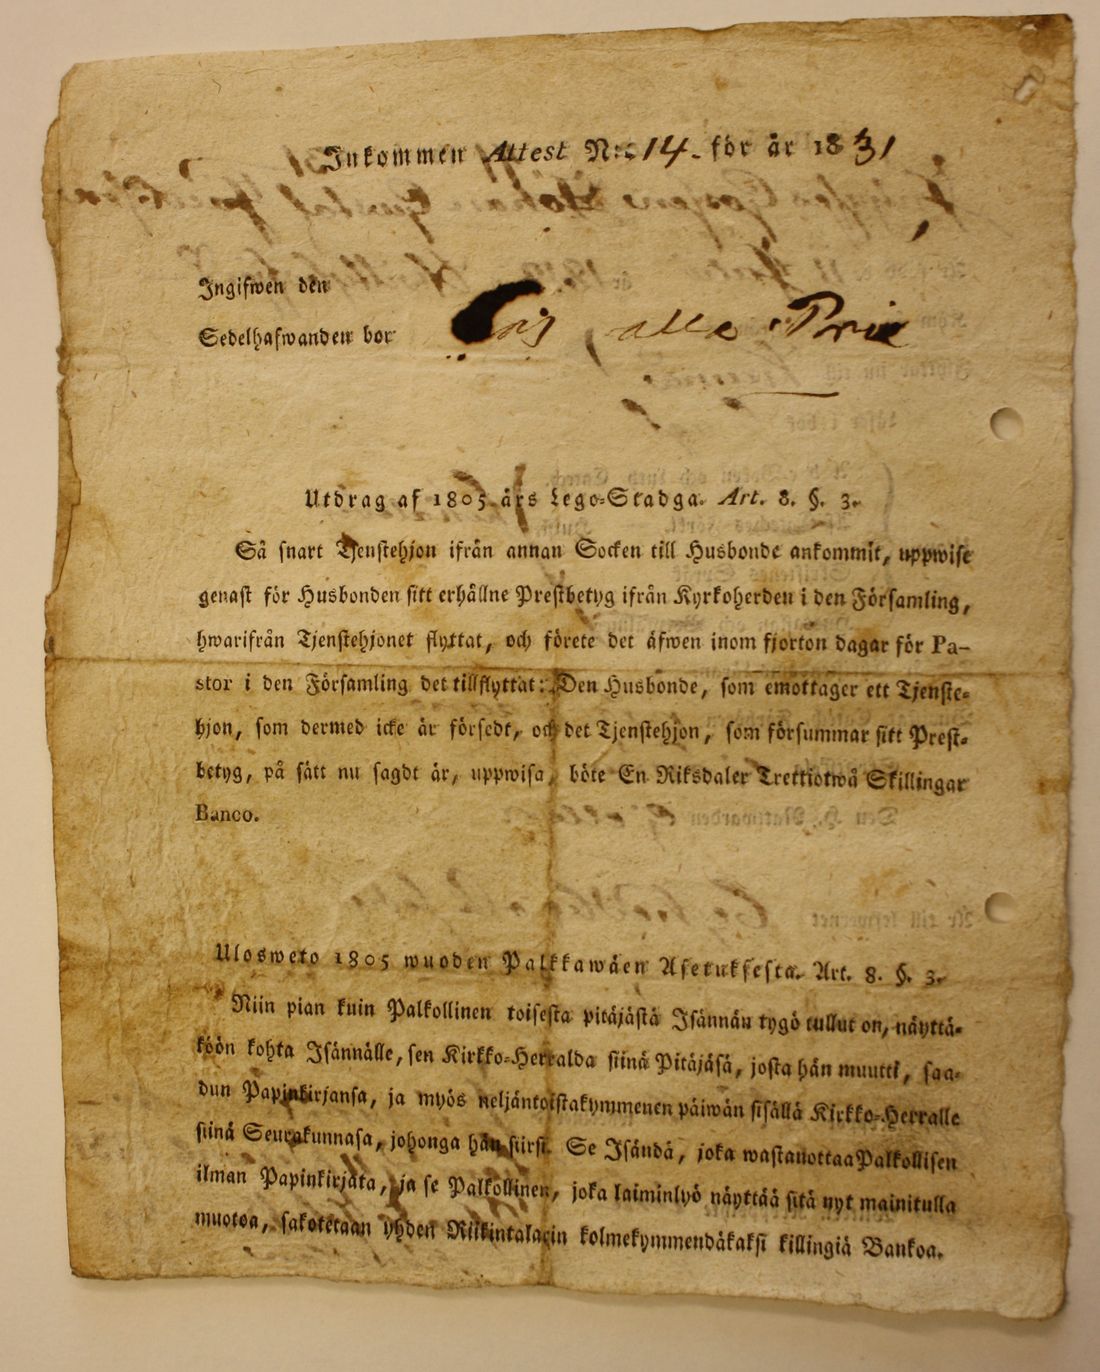 Inkommen Attest N:o 14. för år 1831
Ingifwen den
Sedelhafwanden bor
Utdrag af 1805 års Lego-Stadga. Art. 8. §. 3.
Så snart Tjenstehjon ifrån annan Socken till Husbonde ankommit, uppwise
genast för Husbonden sitt erhållne Prestbetyg ifrån Kyrkoherden i den Församling,
hwarifrån Tjenstehjonet flyttat, och förete det äfwen inom fjorton dagar för Pa-
stor i den Församling det tillflyttat: Den Husbonde, som emottager ett Tjenste-
hjon, som dermed icke är försedt, och det Tjenstehjon, som försummar sitt Prest-
betyg, på sätt nu sagdt är, uppwisa, böte En Riksdaler Trettiotwå Skillingar
Banco.
Ulosweto 1805 wuoden Palkkawäen Asetuksesta. Art. 8. §. 3.
Niin pian kuin Palkollinen toisesta pitäjästä Isännän tygö tullut on, näyttä-
köön kohta Isännälle, sen Kirkko-Herralda siinä Pitäjäsä, josta hän muutti, saa-
dun Papinkirjansa, ja myös neljäntoistakymmenen päiwän sisällä Kirkko-Herralle
siinä Seurakunnasa, johonga hän siirsi. Se Isändä, joka wastanottaa Palkollisen
ilman Papinkirjata, ja se Palkollinen, joka laiminlyö näyttää sitä nyt mainitulla
muotoa, sakotetaan yhden Riikintalarin kolmekymmendäkaksi killingiä Bankoa.